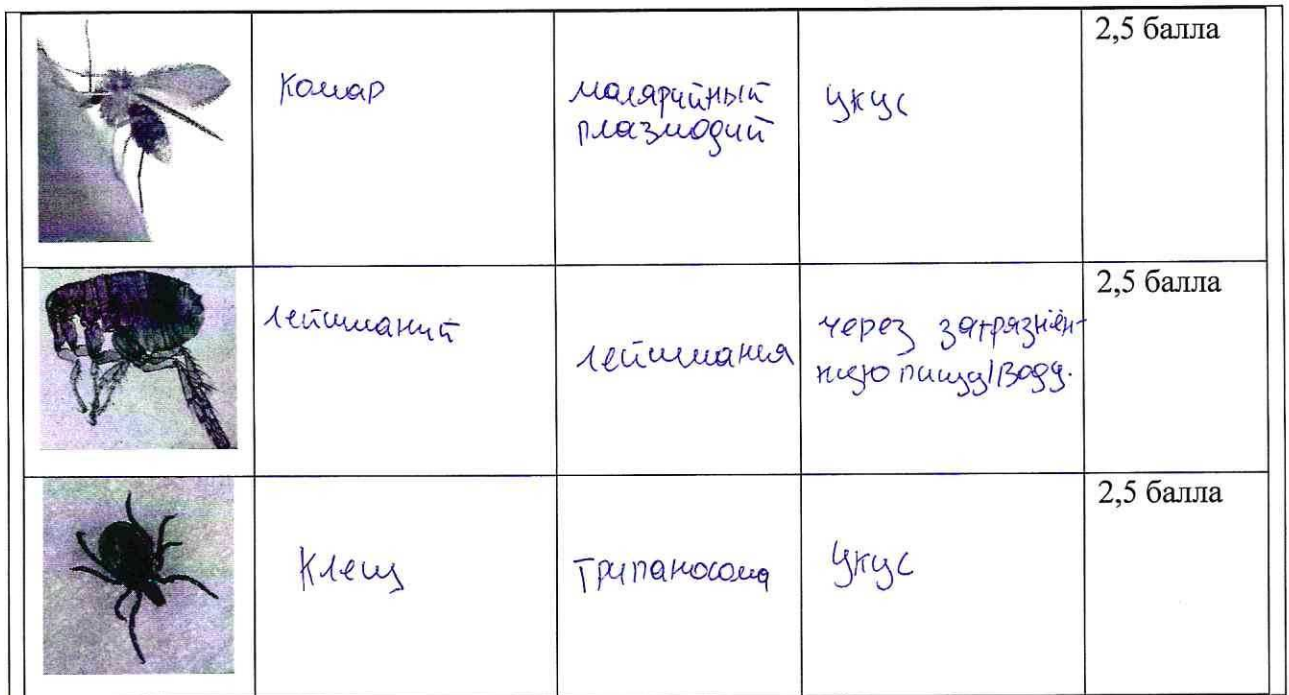 2,5 балла
Комар
малярийный
плазмодий
укус
2,5 балла
лейшманий
лейшмания
через загрязнён-
ную пищу/воду.
2,5 балла
Клещ
Трипаносома
Укус